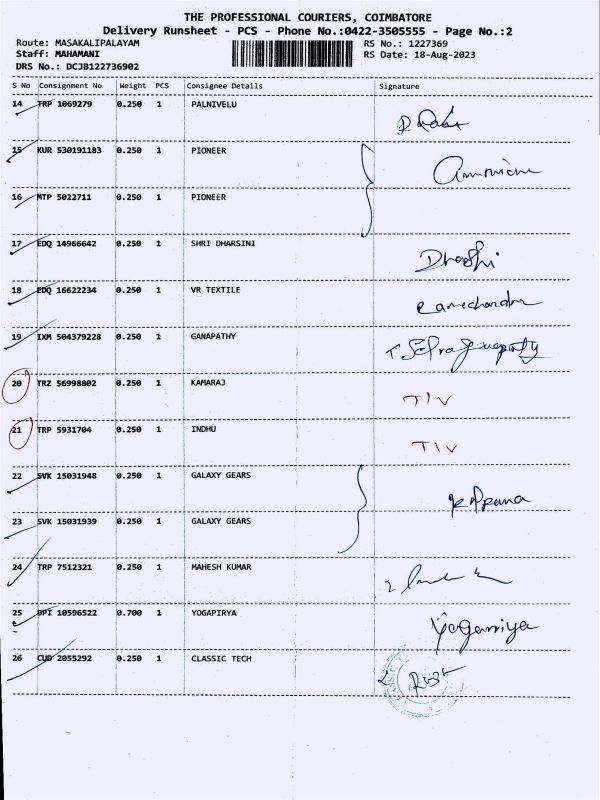 THE PROFESSIONAL COURIERS, COIMBATORE
Delivery Runsheet - PCS - Phone No.:0422-3505555 - Page No.:2
Route: MASAKALIPALAYAM RS No.: 1227369
Staff: MAHAMANI RS Date: 18-Aug-2023
DRS No.: DCJB122736902
S No Consignment No Weight PCS Consignee Details Signature
14 TRP 1069279 0.250 1 PALNIVELU
15 KUR 530191183 0.250 1 PIONEER
16 MTP 5022711 0.250 1 PIONEER
17 EDQ 14966642 0.250 1 SHRI DHARSINI
18 EDQ 16622234 0.250 1 VR TEXTILE
Ramechandra
19 IXM 504379228 0.250 1 GANAPATHY
20 TRZ 56998802 0.250 1 KAMARAJ
TIV
21 TRP 5931704 0.250 1 INDHU
TIV
22 SVK 15031948 0.250 1 GALAXY GEARS
23 SVK 15031939 0.250 1 GALAXY GEARS
24 TRP 7512321 0.250 1 MAHESH KUMAR
25 DPI 10596522 0.700 1 YOGAPIRYA
26 CUD 2055292 0.250 1 CLASSIC TECH